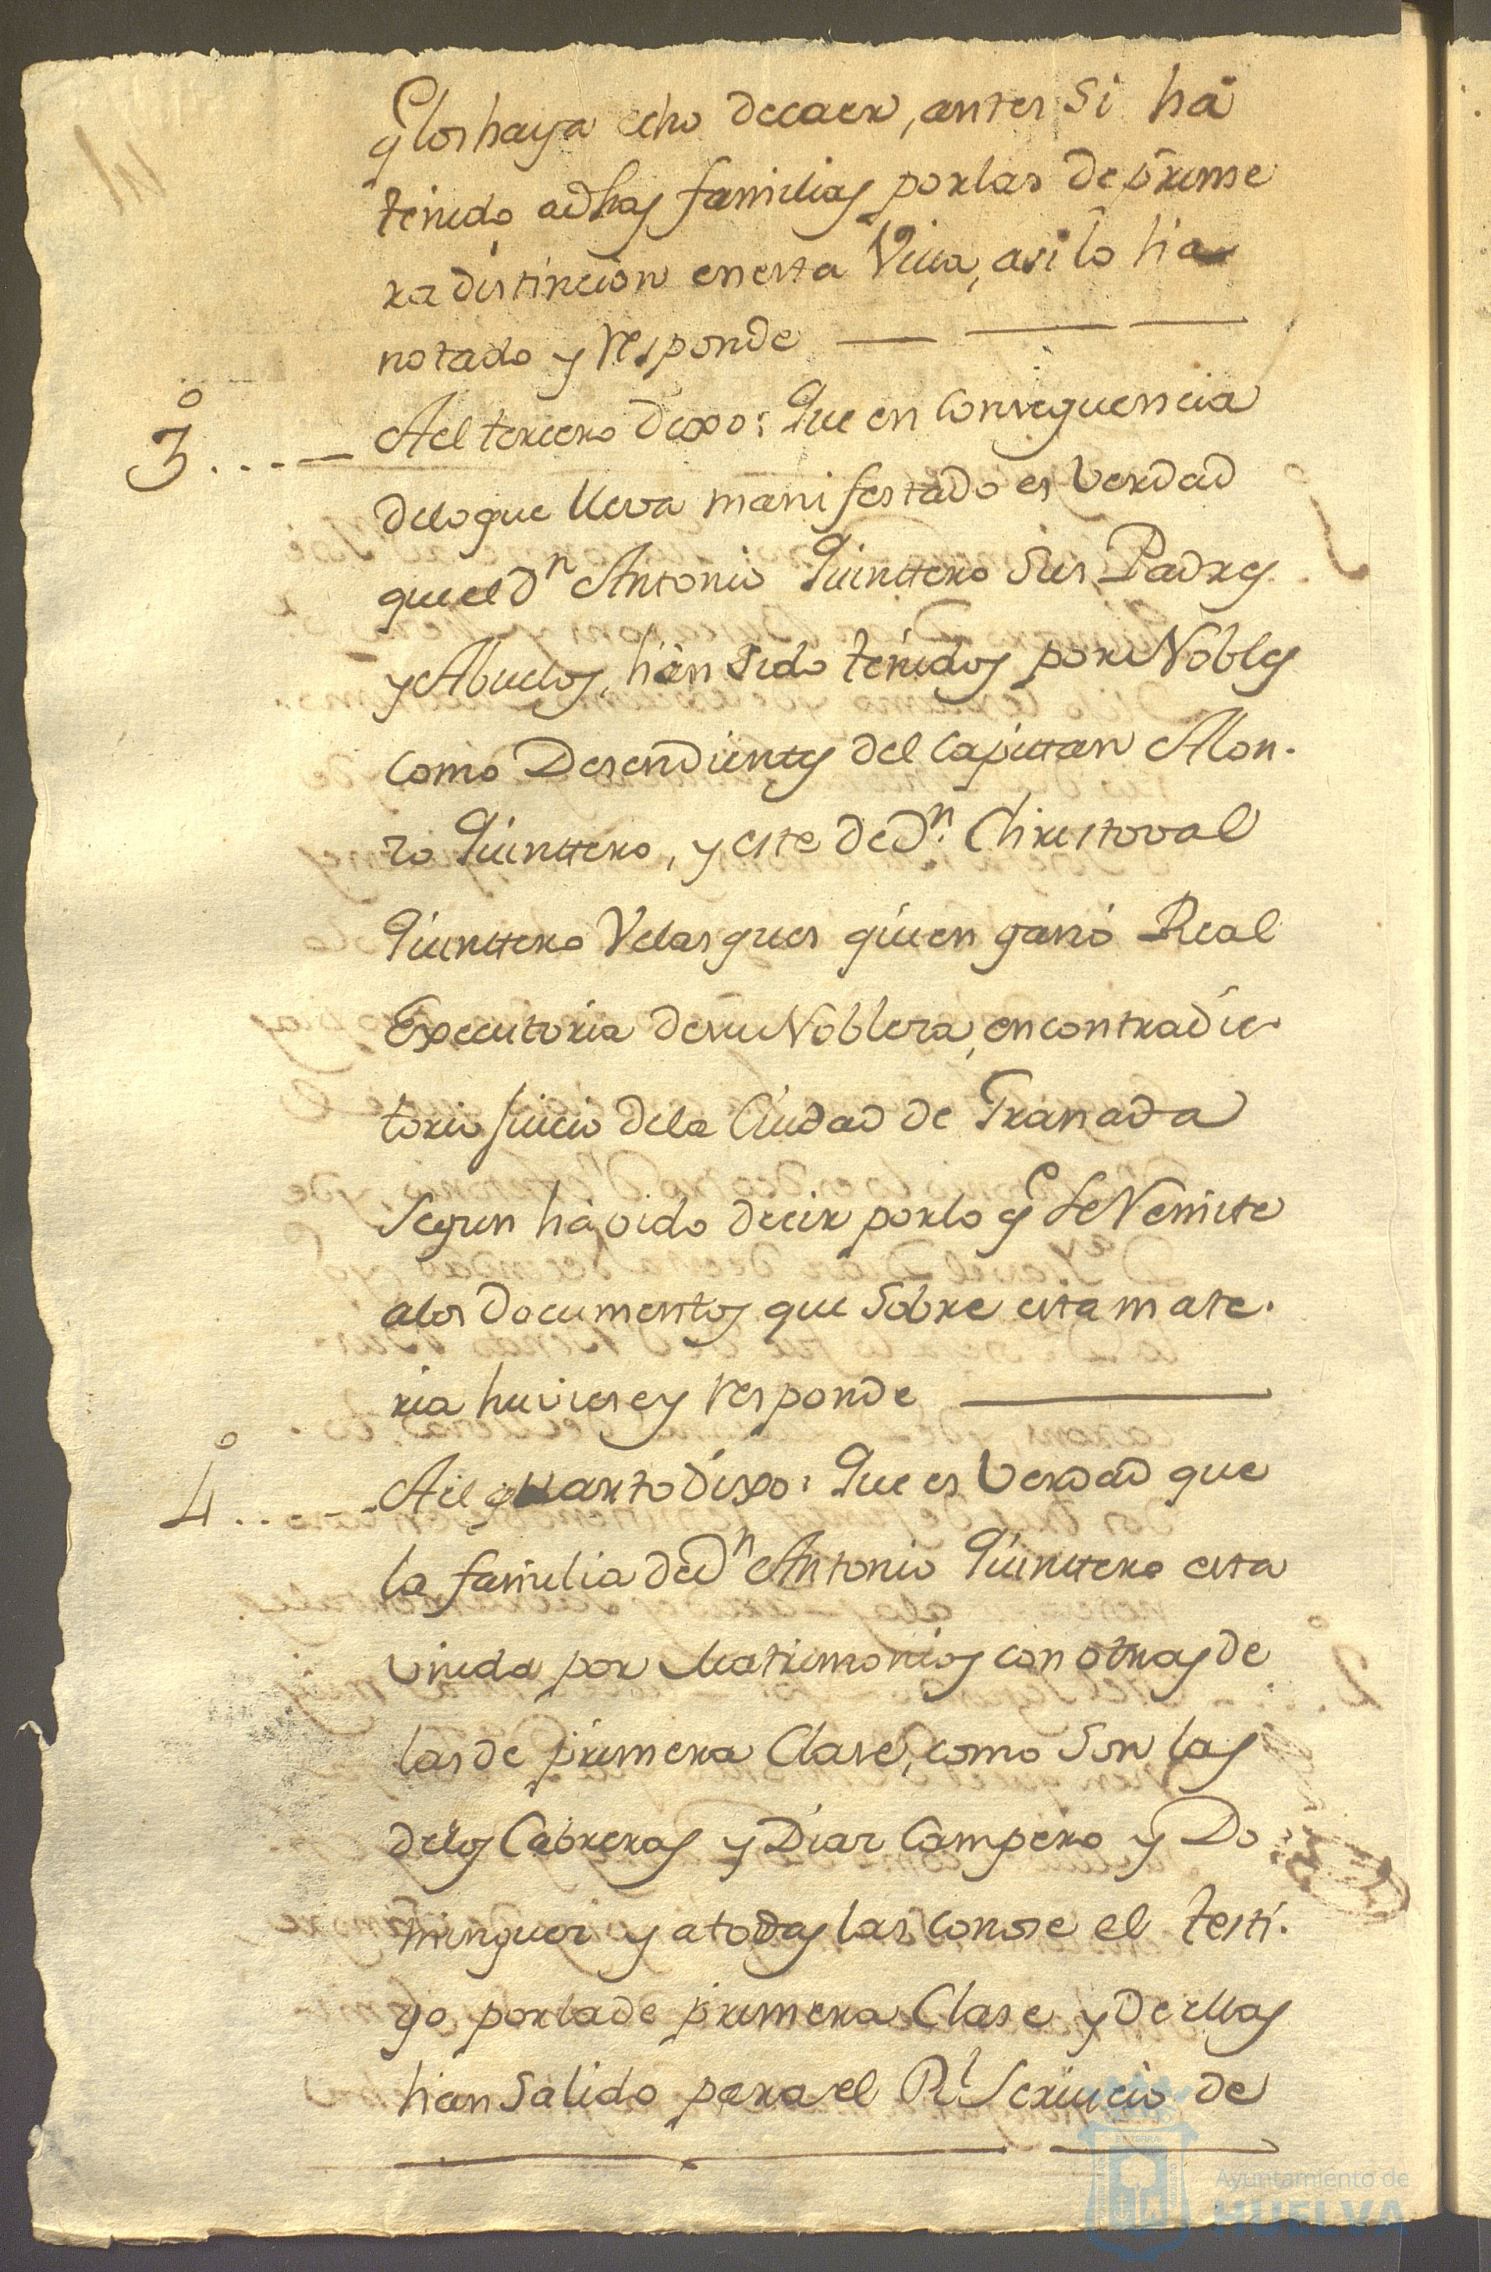 q̃ los haya echo decaer, antes si ha
tenido a dhas familias por las de prime
ra distincion en esta Villa, asi lo ha
notado y responde
3º.... Ael tercero dixo: Que en conseguencia
delo que lleva manifestado es verdad
que el Dn Antonio Quinttero sus Padres
y Abuelos, han sido tenidos por Nobles
como Desendientes del Capittan Alon.
zo Quinttero, y este de Dn. Christoval
Quinttero Velasques quien ganó Real
Executoria de su Nobleza, en contradic
torio juicio dela Ciudad de Granada
segun ha oido decir por lo q̃ se remite
alos documentos que sobre esta mate.
ria huviese y responde
4º.... Ael quarto dixo: Que es verdad que
la familia de Dn Antonio Quinttero esta
vnida por Matrimonios con otras de
las de primera Clase, como son las
delos Cabreras y Diaz Campero y Do
minguez y a todas las conose el testi.
go por la de primera Clase y de ellas
han salido para el Rl Servicio de
Ayuntamiento de
HUELVA